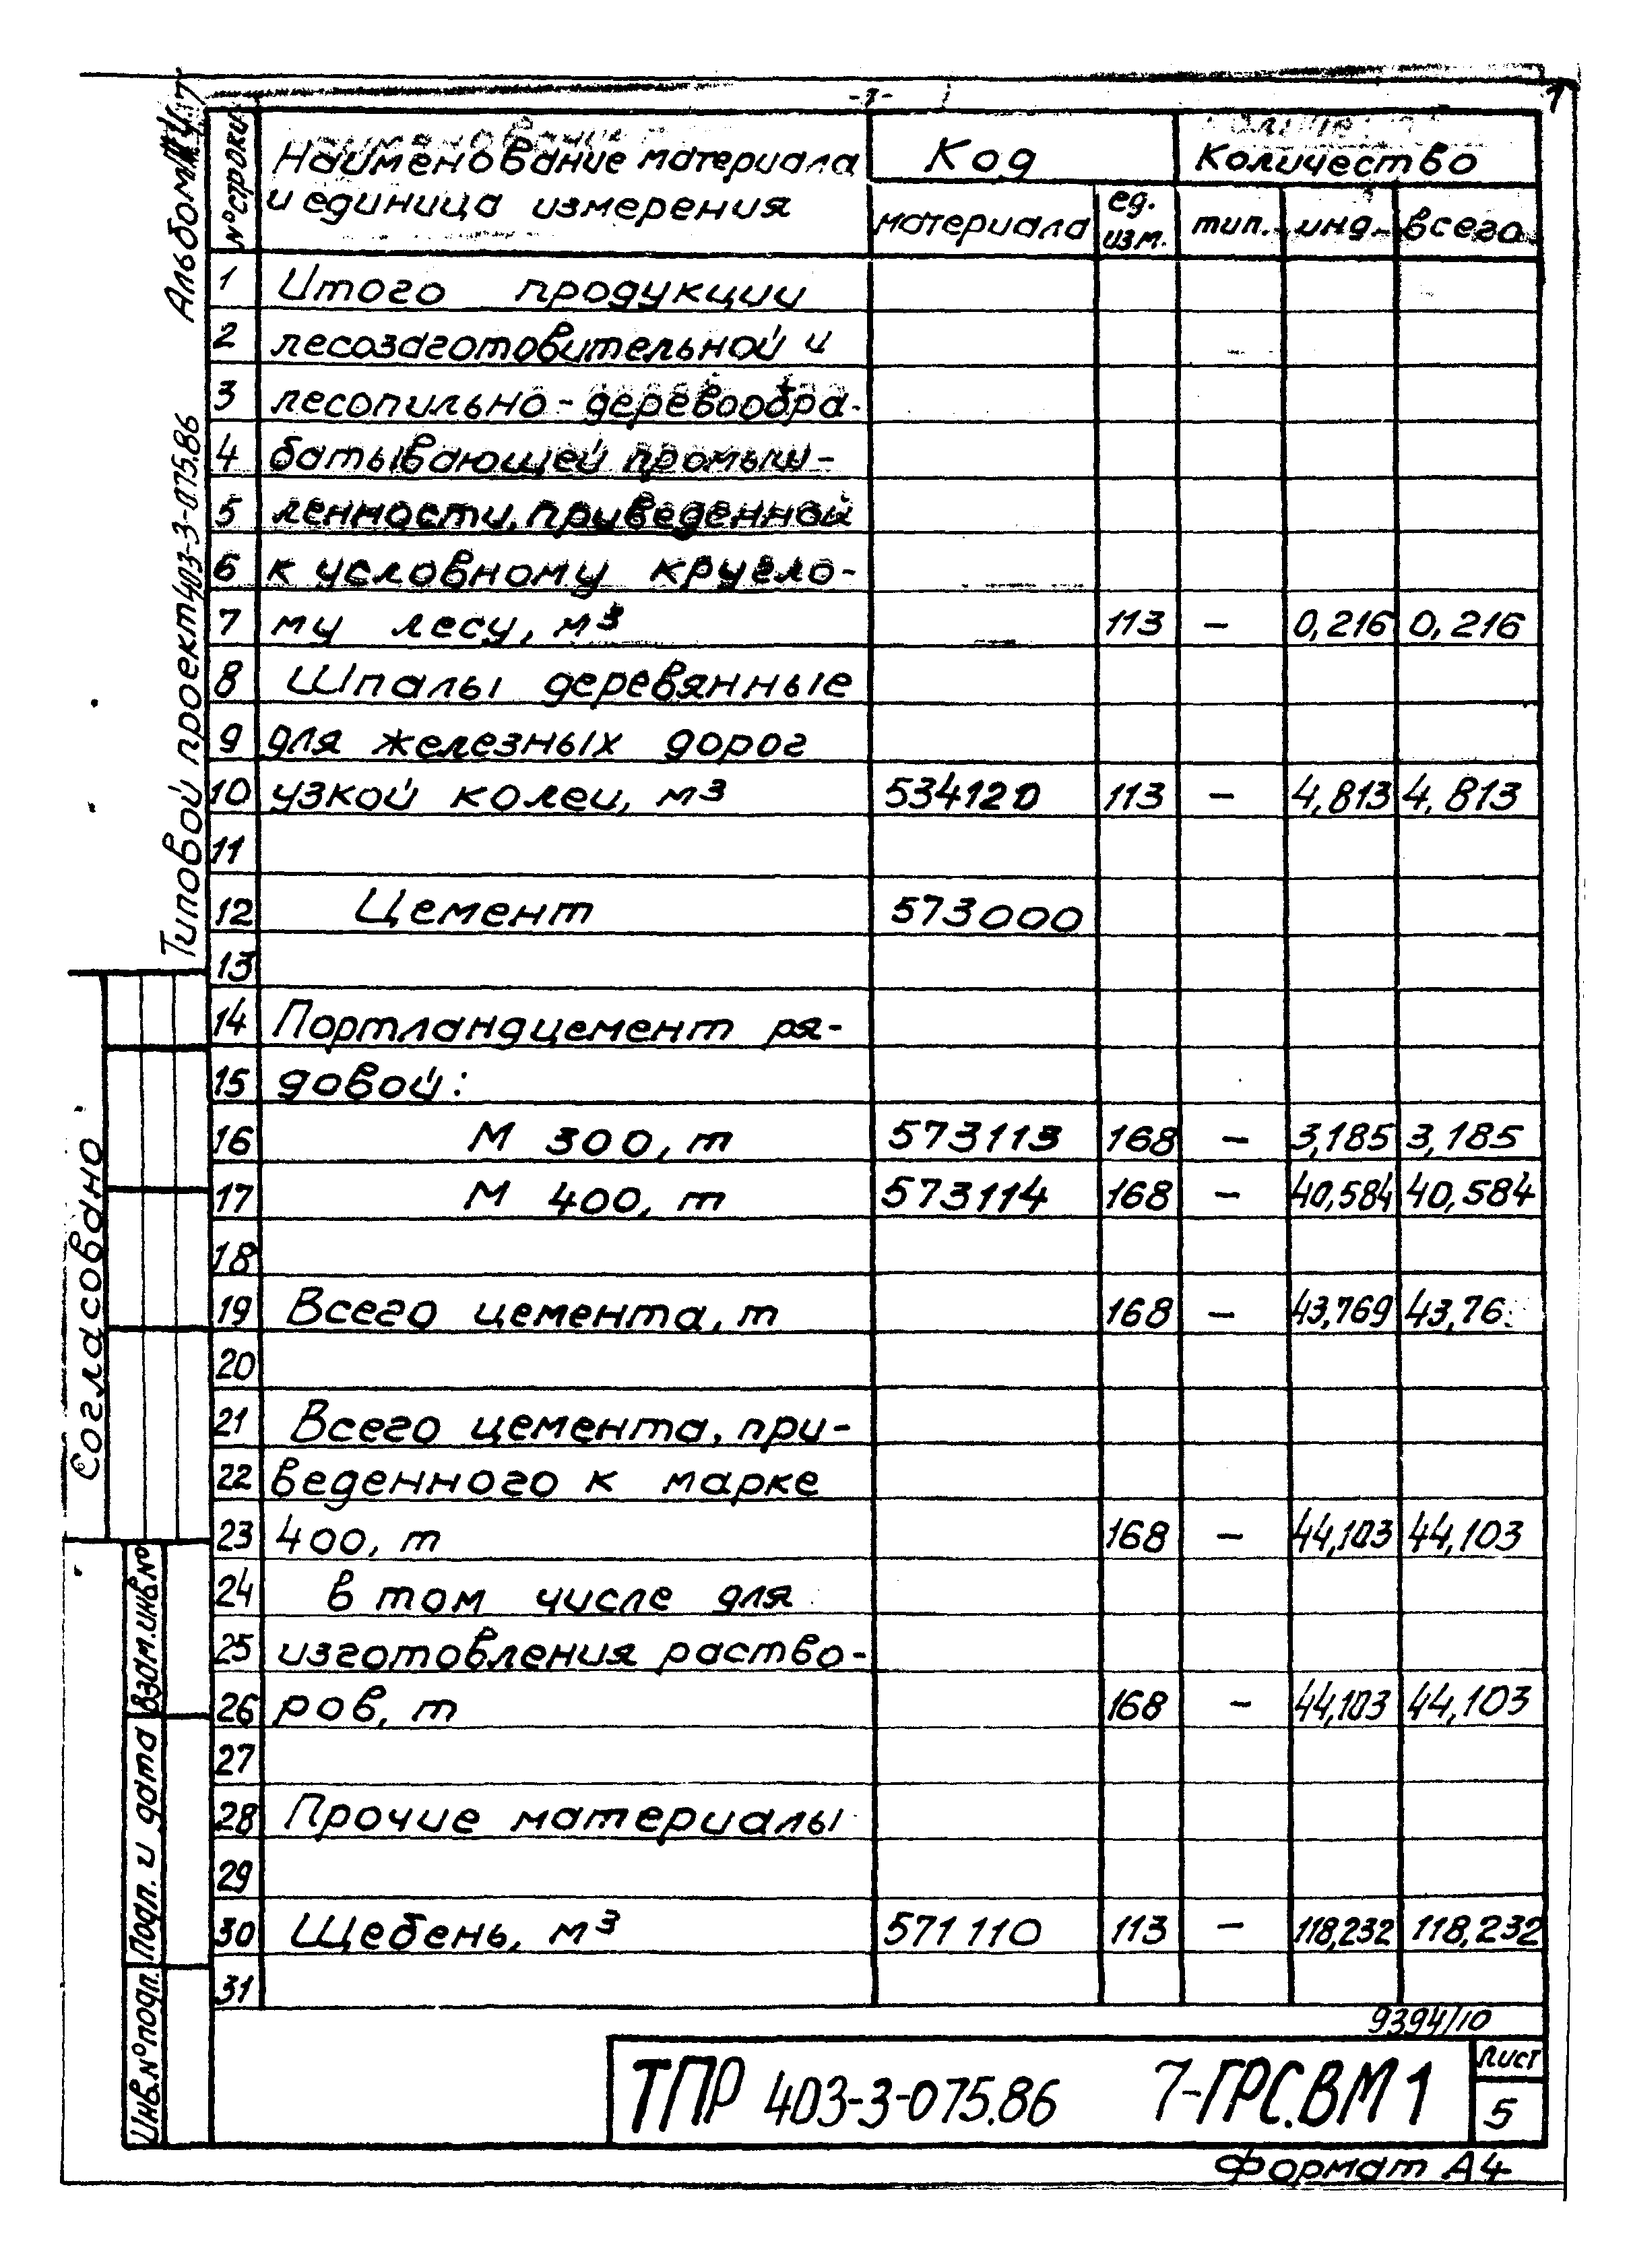 -7-
1
№ строки Наименование материала Код Количество
и единица измерения материала ед. изм. тип. инд. всего
1 Итого продукции
2 лесозаготовительной и
3 лесопильно-деревообра-
4 батывающей промыш-
5 ленности, приведенной
6 к условному кругло-
7 му лесу, м³ 113 – 0,216 0,216
8 Шпалы деревянные
9 для железных дорог
10 узкой колеи, м³ 534120 113 – 4,813 4,813
11
12 Цемент 573000
13
14 Портландцемент ря-
15 довой:
16 М 300, т 573113 168 – 3,185 3,185
17 М 400, т 573114 168 – 40,584 40,584
18
19 Всего цемента, т 168 – 43,769 43,76
20
21 Всего цемента, при-
22 веденного к марке
23 400, т 168 – 44,103 44,103
24 в том числе для
25 изготовления раство-
26 ров, т 168 – 44,103 44,103
27
28 Прочие материалы
29
30 Щебень, м³ 571110 113 – 118,232 118,232
31
9394/10
ТПР 403-3-075.86 7-ГРС.ВМ1
Лист
5
Формат А4
Типовой проект 403-3-075.86 Альбом
Согласовано
Взам.инв.№
Подп. и дата
Инв.№ подл.